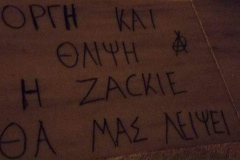 ΟΡΓΗ ΚΑΙ
ΘΛΙΨΗ Ⓐ
Η ZACKIE
ΘΑ ΜΑΣ ΛΕΙΨΕΙ